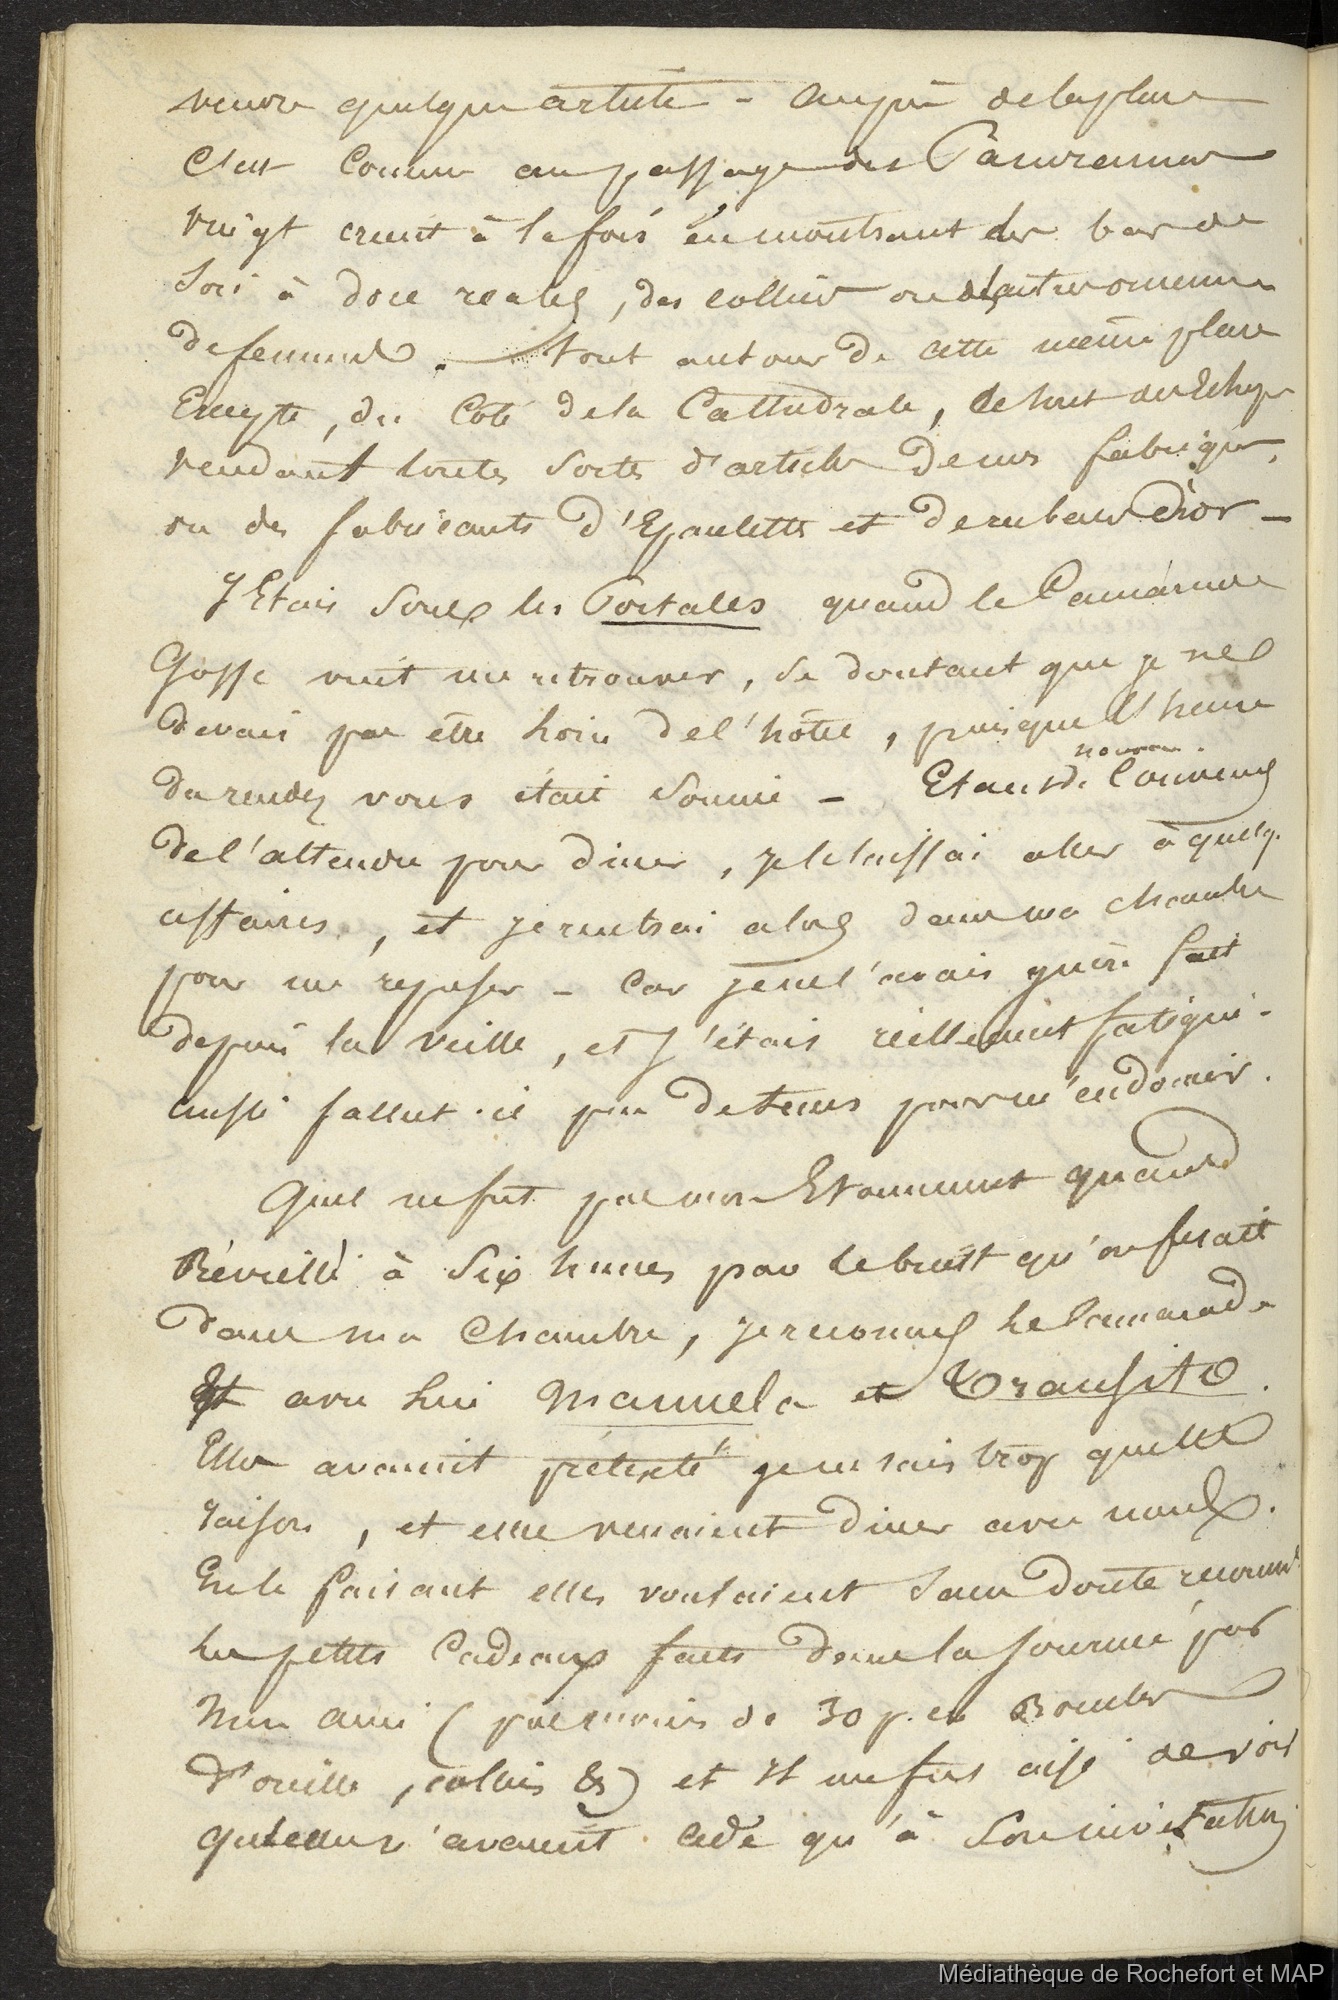 vendre quelque article - auprès de la place
c'est comme au passage des Panoramas
vingt crient à la fois en montrant des bas de
soie à doce reales, des colliers ou d'autres ornemens
de femmes. Tout autour de cette même place
Excepté, du Coté de la Cathedrale, des Echopes
vendant toutes sortes d'articles de nos fabriques,
ou des fabricants d'Epaulettes et de rubans d'or -
J'Etais sous les Portales quand le Camarade
Gosse vint me retrouver, se doutant que je ne
devais pas être loin de l'hôtel, puisque l'heure
du rendez vous était sonnée - Etant de nouveau Convenus
de l'attendre pour diner, je le laissai aller à quelq.
affaires, et je rentrai alors dans ma chambre
pour me reposer - Car je ne l'avais guère fait
depuis la veille, et j'étais réellement fatigué -
aussi fallut-il peu de tems pour m'endormir.
Quel ne fut pas mon Etonnement quand
Réveillé à six heures par le bruit qu'on fesait
dans ma Chambre, je reconnus le Camarade
Et avec lui Manuela et Transito.
Elles avaient prétexté je ne sais trop quelle
raison, et elles venaient diner avec nous.
En le faisant elles voulaient sans doute reconne
les petits Cadeaux faits dans la journée par
mon ami (pas moins de 30 p. en Boucles
d'oreille, colliers &) et il me fut aisé de voir
qu'elles n'avaient cédé qu'à son invitation
Médiathèque de Rochefort et MAP